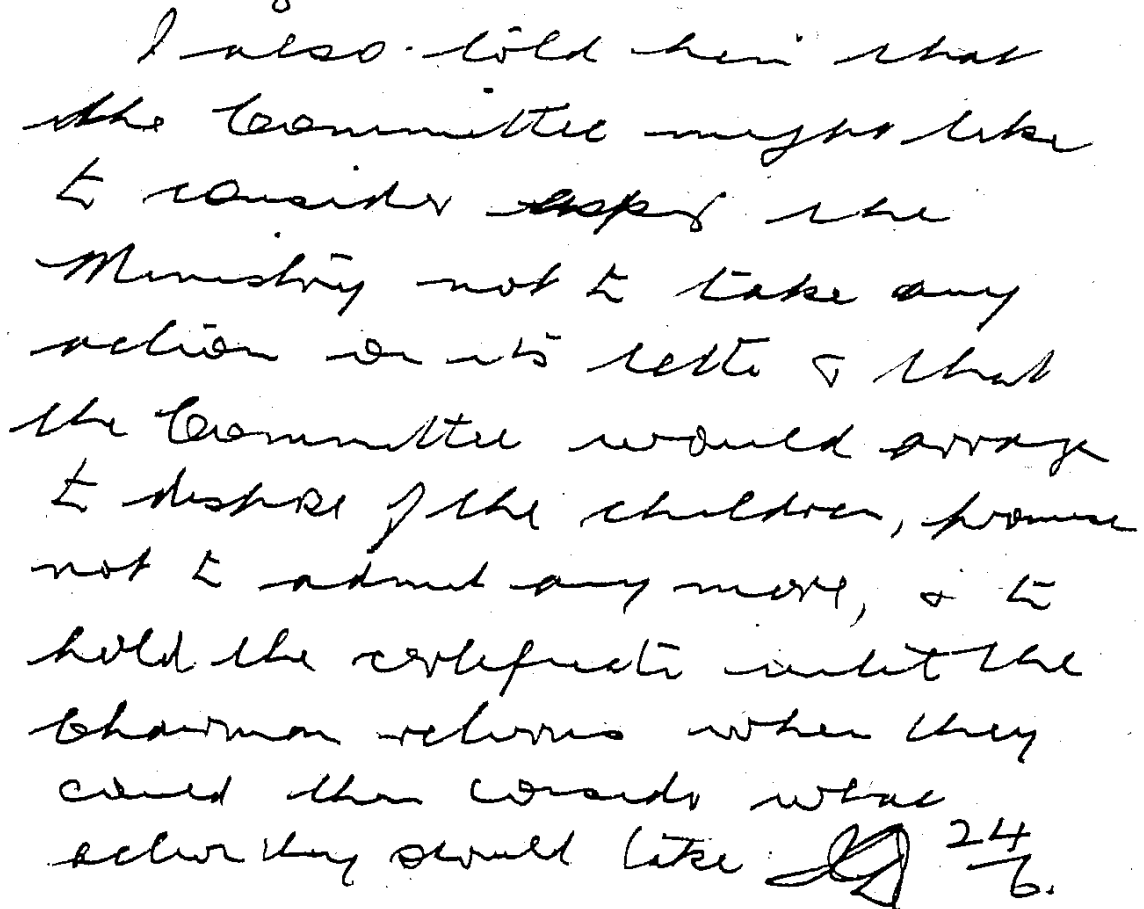 I also told him that
the Committee might like
to consider asking the
Ministry not to take any
action on its letter & that
the Committee would arrange
to dispose of the children, promise
not to admit any more, & to
hold the certificate until the
Chairman returns when they
could then consider what
action they should take
24/6.